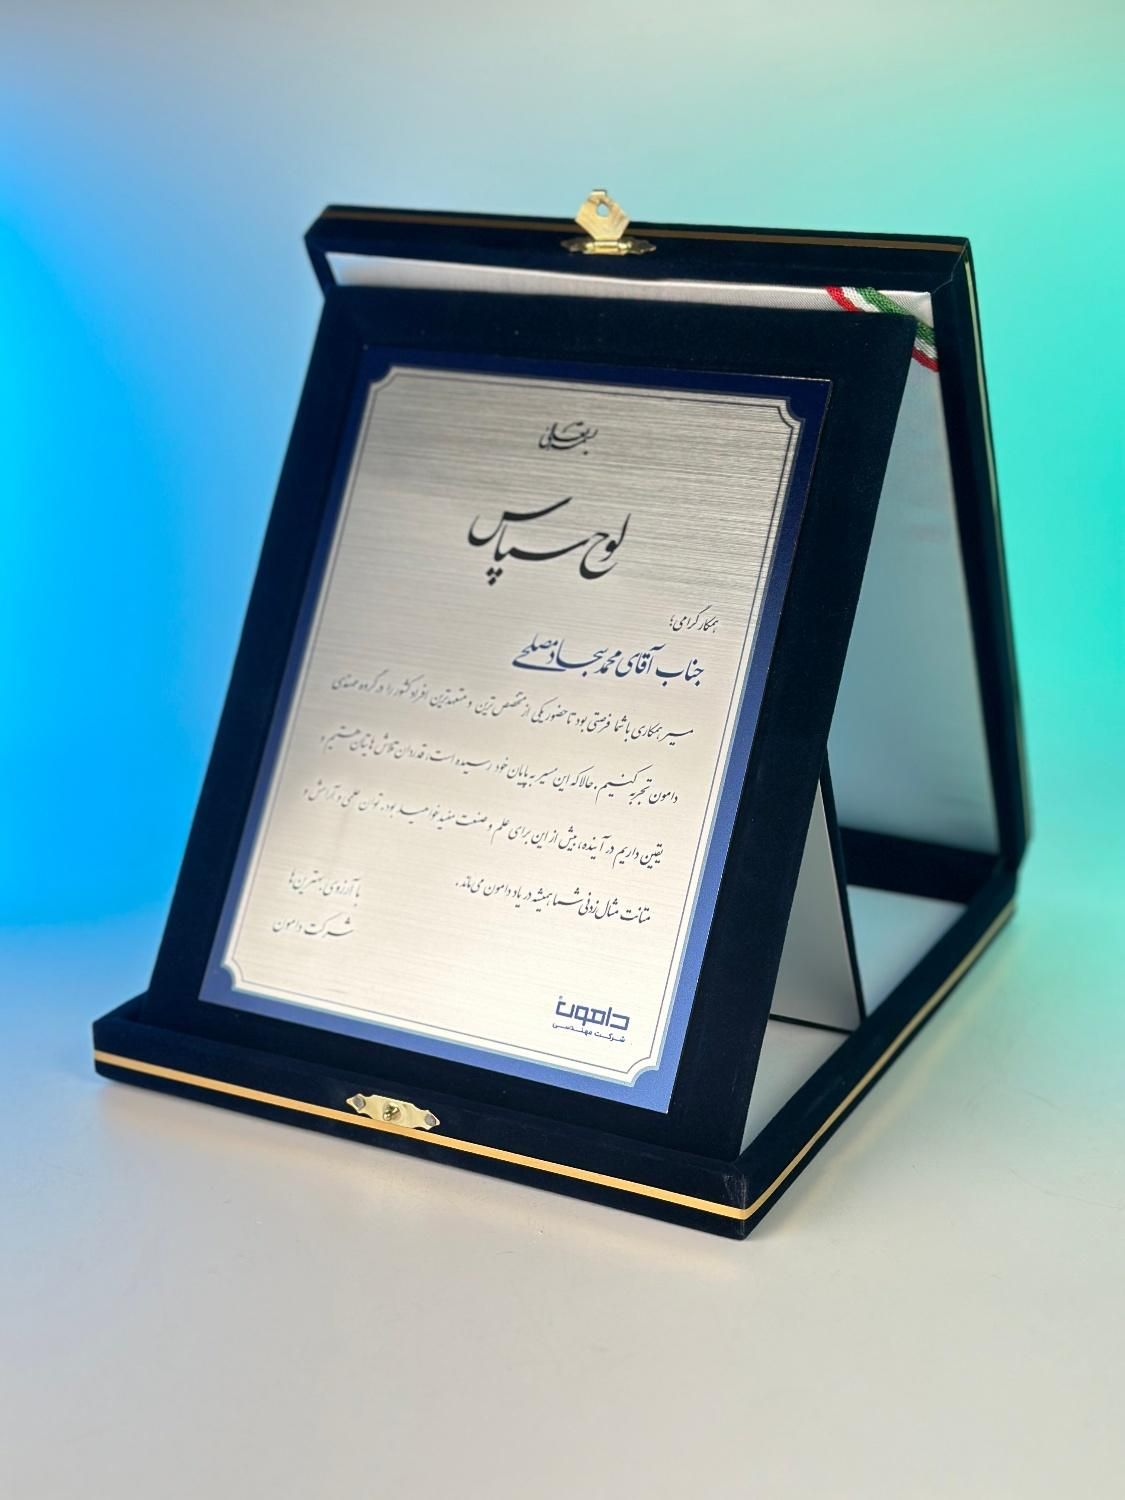 بسمه تعالی
لوح سپاس
همکار گرامی؛
جناب آقای محمد سجاد مصلحی
مسیر همکاری با شما فرصتی بود تا حضور یکی از متخصص ترین و متعهدترین افراد کشور را در گروه مهندسی
دامون تجربه کنیم. حالا که این مسیر به پایان خود رسیده است، قدردان تلاش هایتان هستیم و
یقین داریم در آینده، بیش از این برای علم و صنعت مفید خواهید بود. توان علمی و آرامش و
متانت مثال زدنی شما همیشه در یاد دامون می‌ماند.
با آرزوی بهترین‌ها
شرکت دامون
دامون
شرکت مهندسی